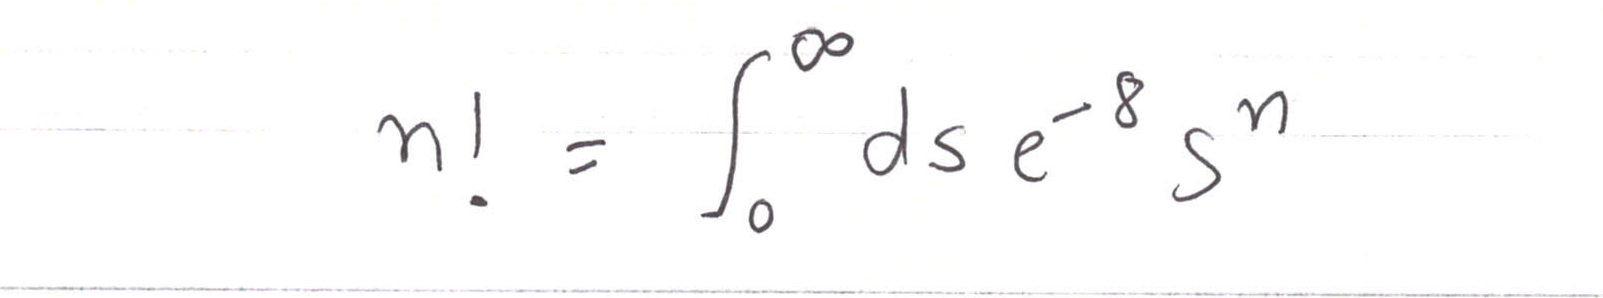 n! = ∫_0^∞ ds e^{-8} s^n